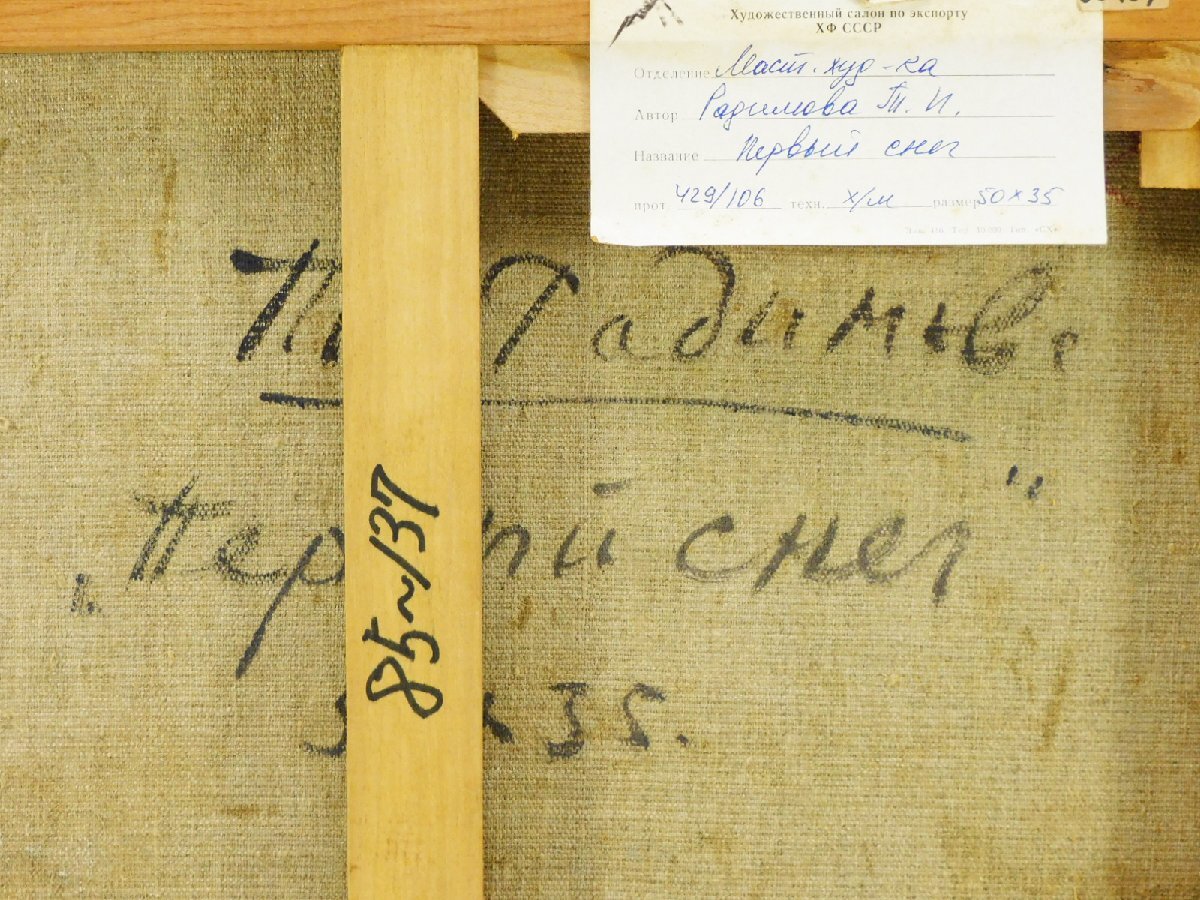 Художественный салон по экспорту
ХФ СССР
Отделение Маст. худ-ка
Автор Радимова Т. И.
Название Первый снег
прот 429/106 техн. х/м размер 50×35
Радимова
85~137
снег"
35.